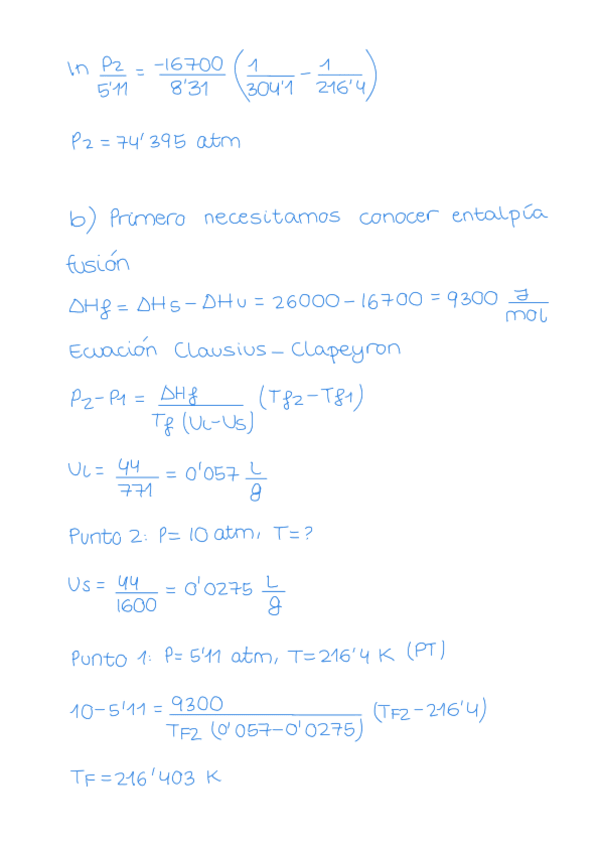 ln P2/5'11 = -16700/8'31 (1/304'1 - 1/216'4)
P2 = 74'395 atm
b) Primero necesitamos conocer entalpía
fusión
ΔHf = ΔHs - ΔHv = 26000 - 16700 = 9300 J/mol
Ecuación Clausius - Clapeyron
P2 - P1 = ΔHf/Tf (VL - Vs) (Tf2 - Tf1)
VL = 44/771 = 0'057 L/g
Punto 2: P = 10 atm, T = ?
Vs = 44/1600 = 0'0275 L/g
Punto 1: P = 5'11 atm, T = 216'4 K (PT)
10 - 5'11 = 9300/TF2 (0'057 - 0'0275) (TF2 - 216'4)
TF = 216'403 K